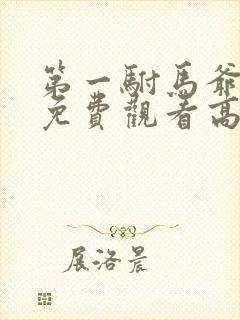 第一駙馬爺
免費觀看高
展洛晨